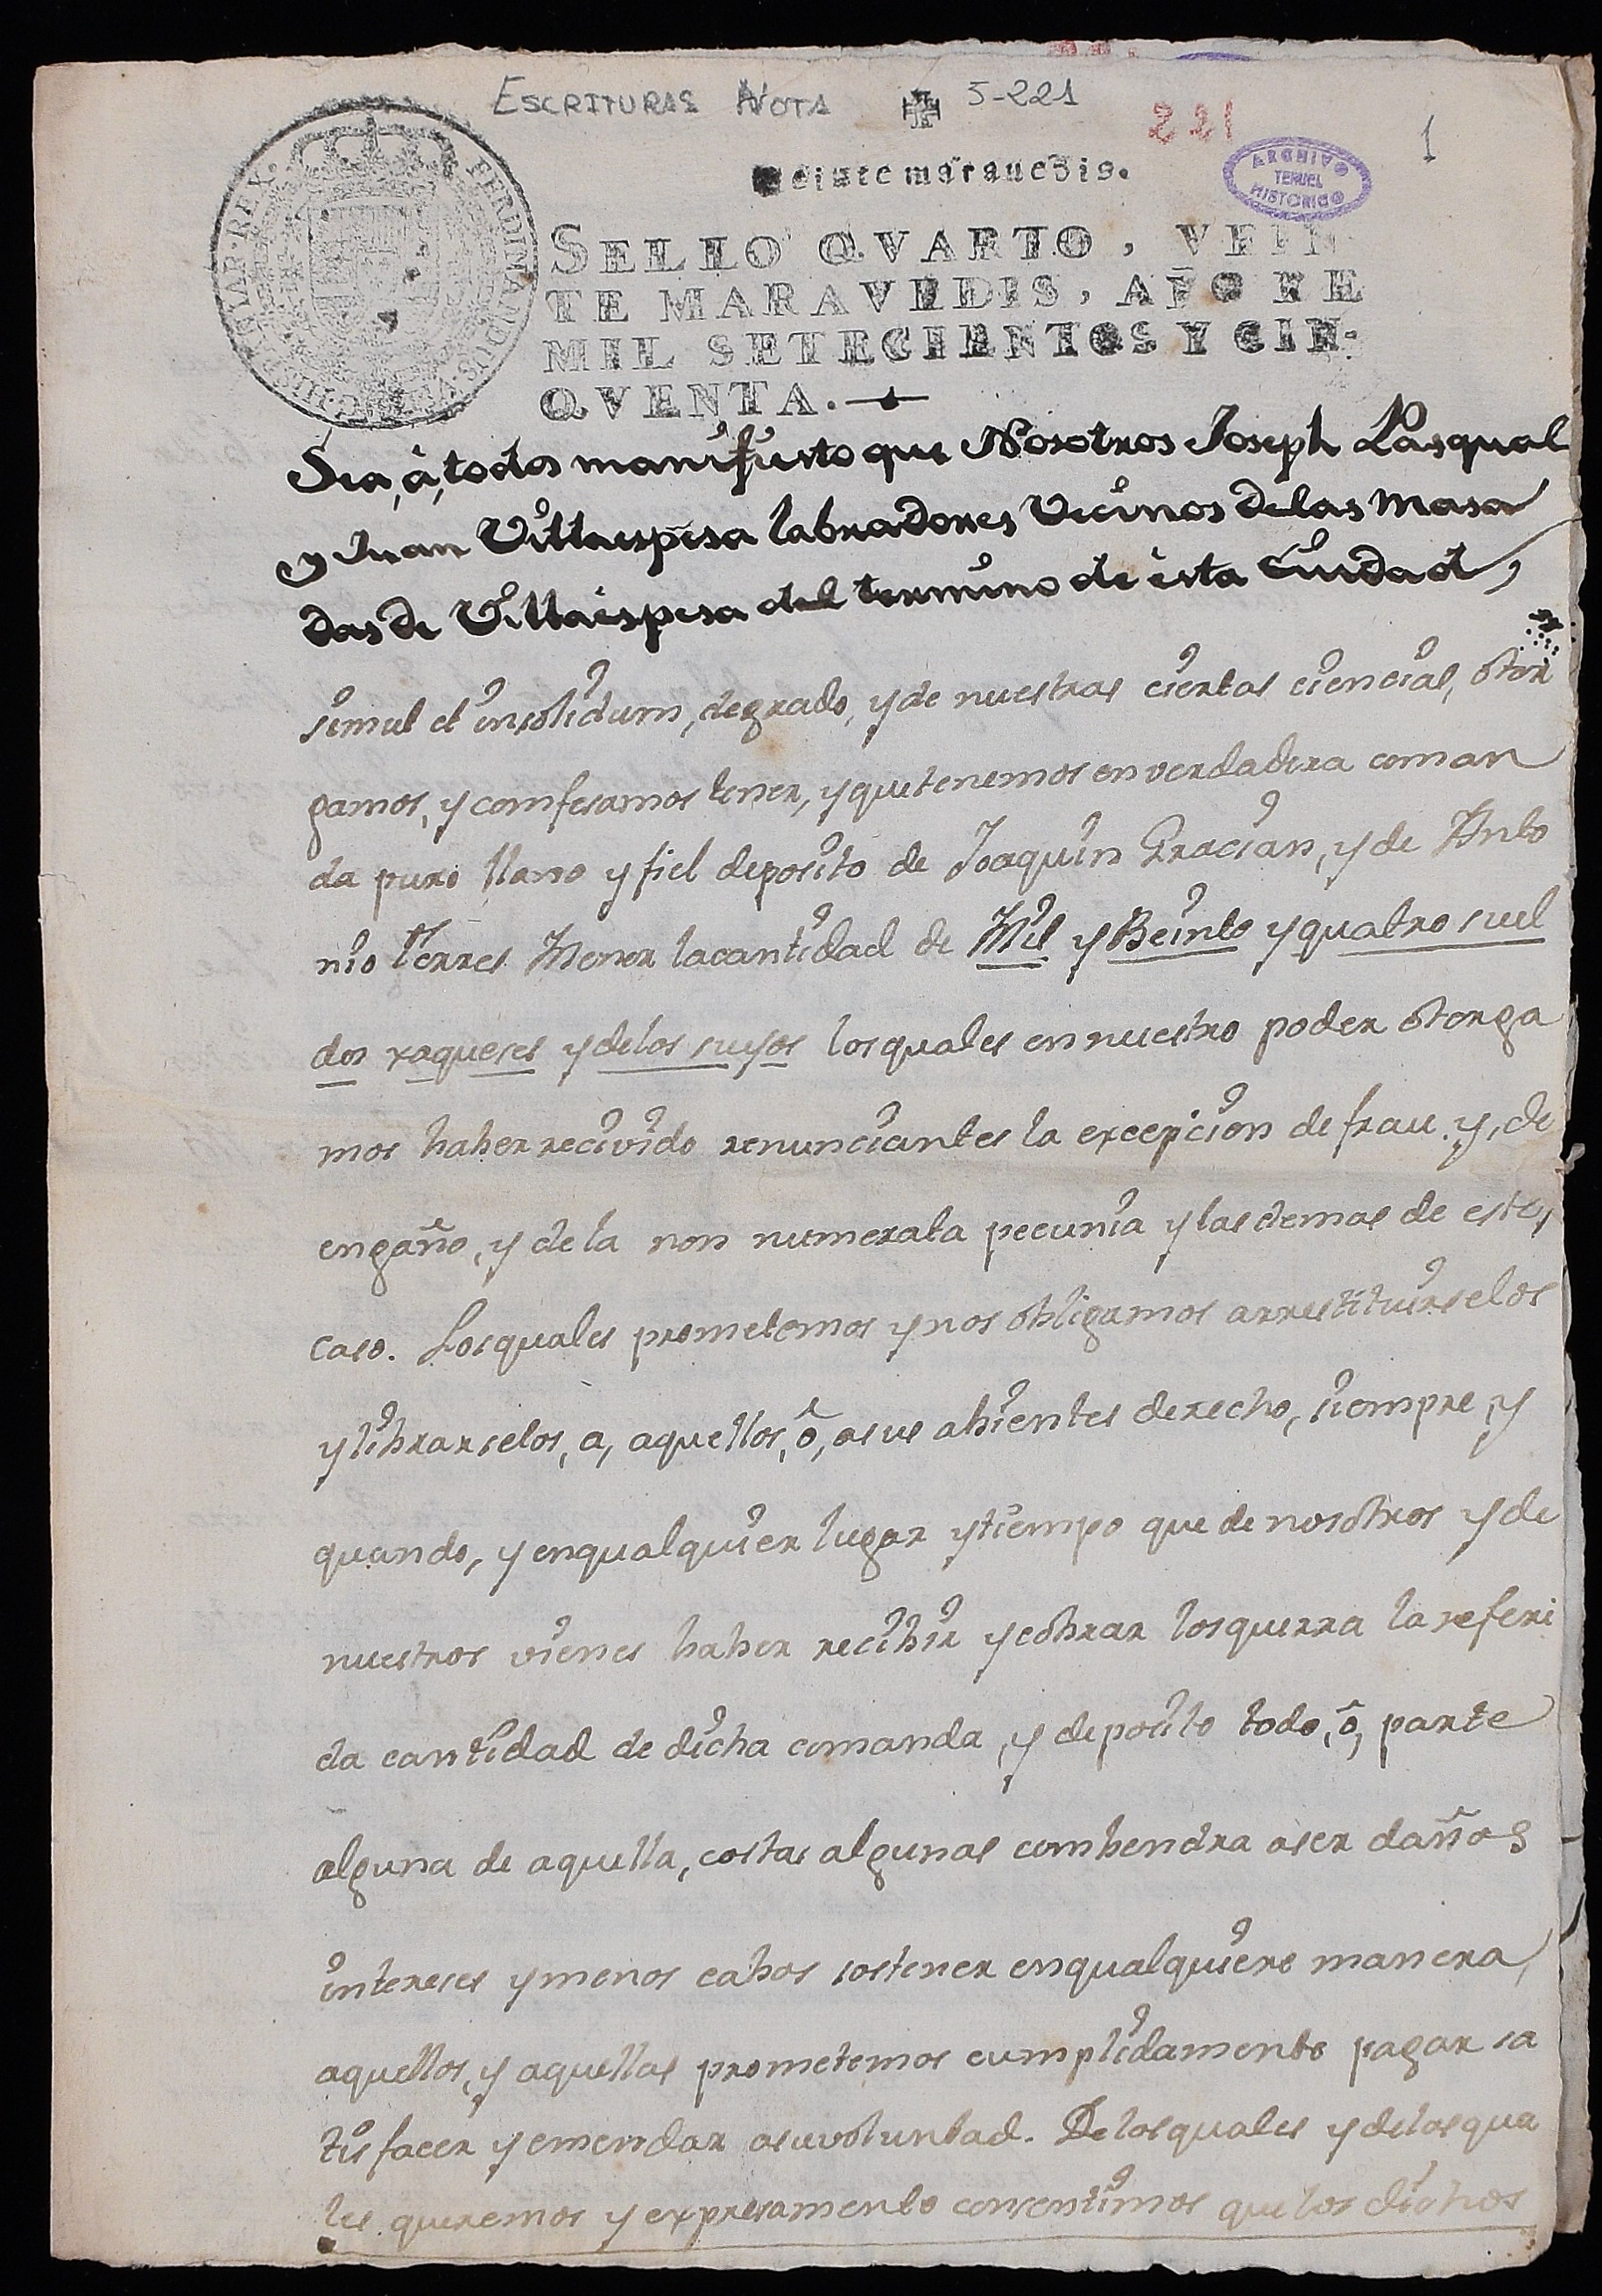 ESCRITURAS NOTA 5-221
221
1
ARCHIVO
TERUEL
HISTORICO
Veinte marauedis.
FERDINANDUS VI D G HISPANIAR REX
SELLO QVARTO, VEIN
TE MARAVEDIS, AÑO DE
MIL SETECIENTOS Y CIN-
QVENTA.
Sea, á, todos manifiesto que Nosotros Joseph Pasqual
y Juan Villaespesa labradores Vecinos de las Masa
das de Villaéspesa del termino de ésta Ciudad,
simul et insolidum, de grado, y de nuestras ciertas ciencias, otor
gamos, y comfesamos tener, y que tenemos en verdadera coman
da puro llano y fiel deposito de Joaquin Gracian, y de Anto
nio Terres Menor la cantidad de Mil y Beinte y quatro suel
dos xaqueses y de los suyos los quales en nuestro poder otorga
mos haber recivido renunciantes la excepcion de frau. y, de
engaño, y de la non numerata pecunia y las demas de este,
caso. Los quales prometemos y nos obligamos arrestituirselos
y librarselos, a, aquellos, ô, asus abientes derecho, siempre, y
quando, y en qualquier lugar y tiempo que de nosotros y de
nuestros vienes haber recibir y cobrar los querra la referi
da cantidad de dicha comanda, y deposito todo, ô, parte
alguna de aquella, costas algunas combendra aser daños
intereses y menos cabos sostener en qualquiere manera,
aquellos, y aquellas prometemos cumplidamente pagar sa
tisfacer y emendar asuvoluntad. De los quales y de las qua
les queremos y expresamente consentimos que los dichos